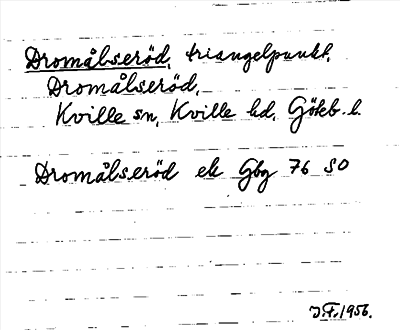 Dromålseröd, triangelpunkt,
Dromålseröd,
Kville sn, Kville hd, Göteb. l.
Dromålseröd ek Gbg 76 SO
J.F. 1956.